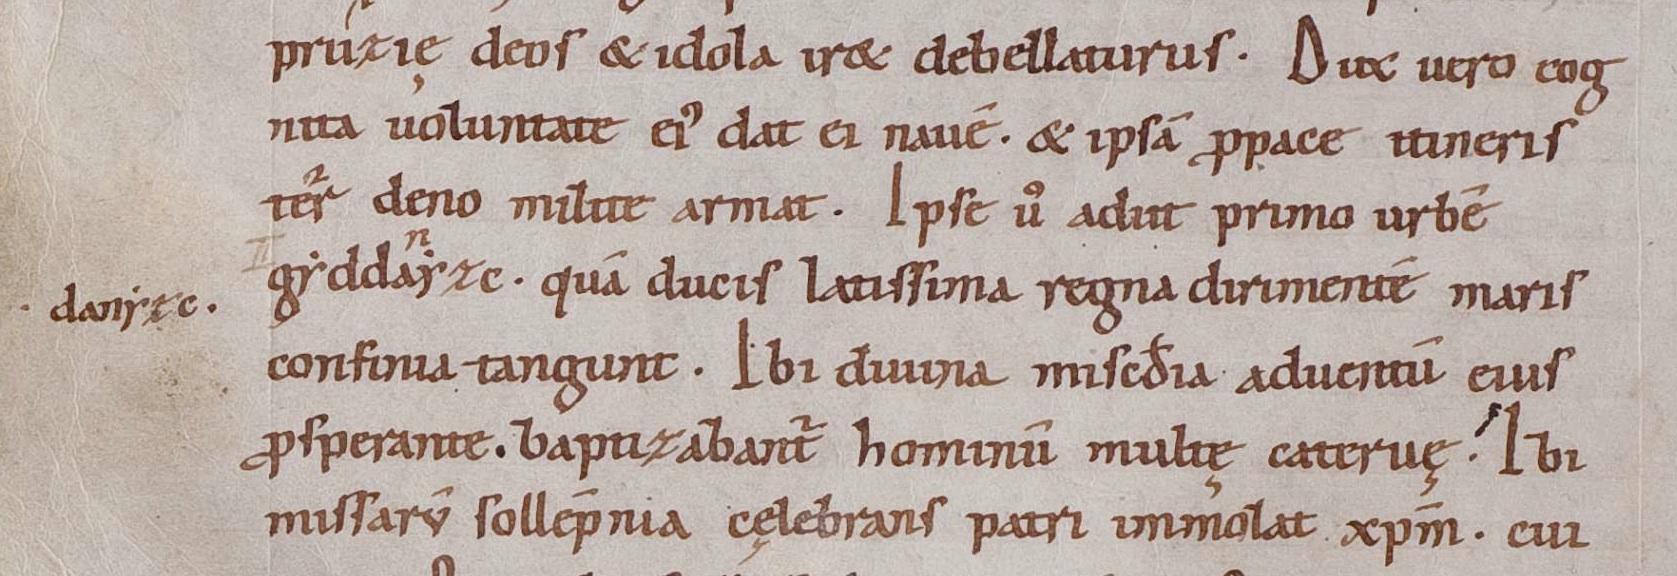 pruzię deos & idola ir& debellaturus. Dux uero cog
nita uoluntate ei⁹ dat ei nauē. & ipsā ꝓpace itineris
ter deno milite armat. Ipse u͛o adiit primo urbē
n
gẏddaẏzc. quā ducis latissima regna dirimentē maris
· danẏzc.
confinia tangunt. Ibi diuina misc̄dia aduentū eius
ꝓsperante. baptizabant᷑ hominū multę cateruę. Ibi
missarū sollēpnia cęlebrans patri immolat xpm̄. cui